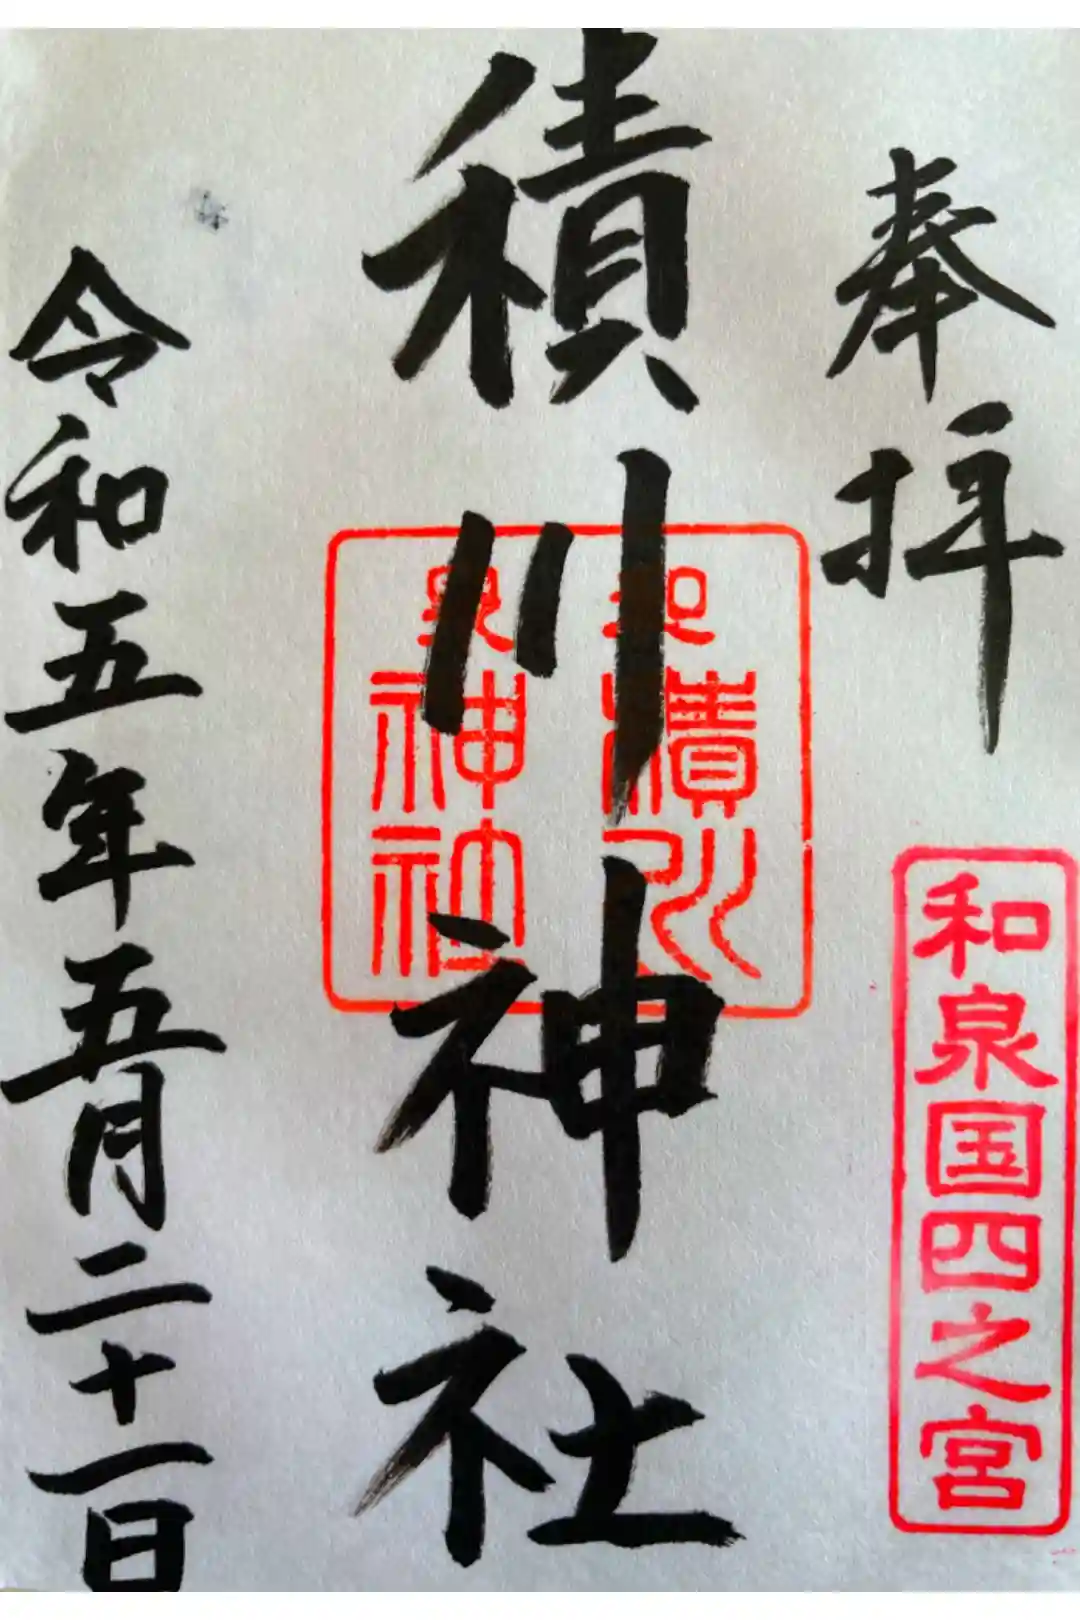 奉拝
和泉国四之宮
積川神社
和泉
積川
神社
令和五年五月二十一日